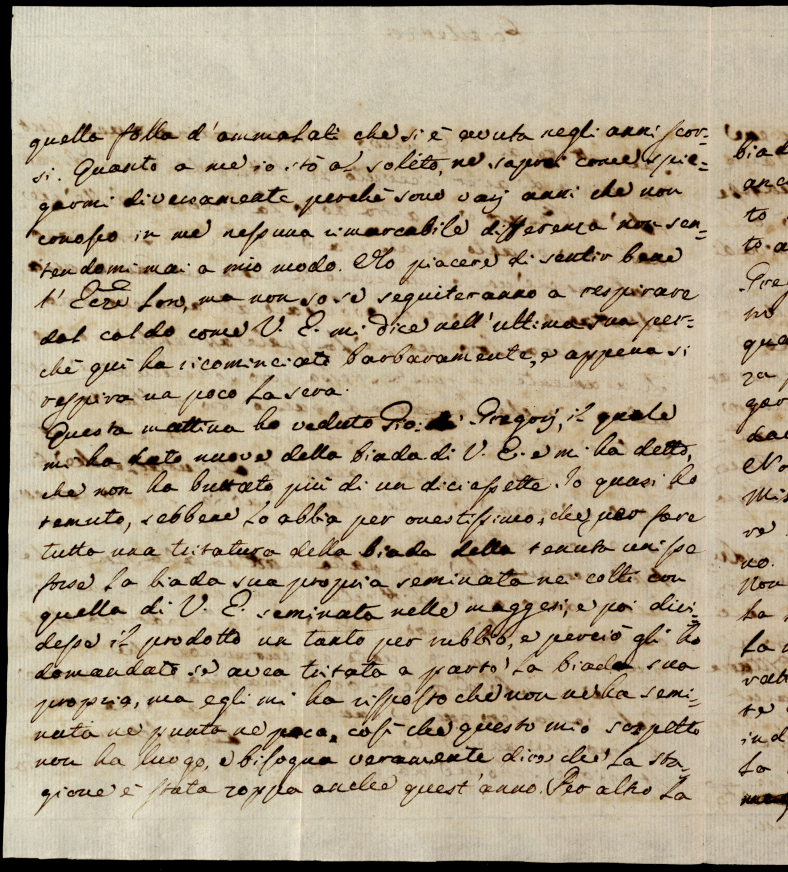 quella folla d'ammalati che si è avuta negli anni scor=
si. Quanto a me io stò al solito, ne saprei come spie=
garmi diversamente perchè sono varj anni che non
conosco in me nessuna rimarcabile differenza non sen=
tendomi mai a mio modo. Ho piacere di sentir bene
l'Ecc.ze Loro, ma non so se seguiteranno a respirare
dal caldo come V. E. mi dice nell'ultima sua per=
chè quì ha ricominciato barbaramente, e appena si
respira un poco la sera.
Questa mattina ho veduto Gio: di Gregorj, il quale
mi ha dato nuove della biada di V. E. e mi ha detto,
che non ha buttato più di un diciassette. Io quasi ho
temuto, sebbene lo abbia per onestissimo, che per fare
tutta una tritatura della biada della tenuta unisse
forse la biada sua propria seminata ne colti con
quella di V. E. seminata nelle maggesi, e poi divi=
desse il prodotto un tanto per rubbio, e perciò gli ho
domandato se avea tritata a parte la biada sua
propria, ma egli mi ha risposto che non ne ha semi=
nata ne punta ne poca, così che questo mio sospetto
non ha luogo, e bisogna veramente dire che la sta=
gione è stata zoppa anche quest'anno. Per altro la
biad
anc
to
to a
Greg
no
qua
za
gar
dac
No
Mis
re
no.
Non
ha
la
vat
te
ind
la